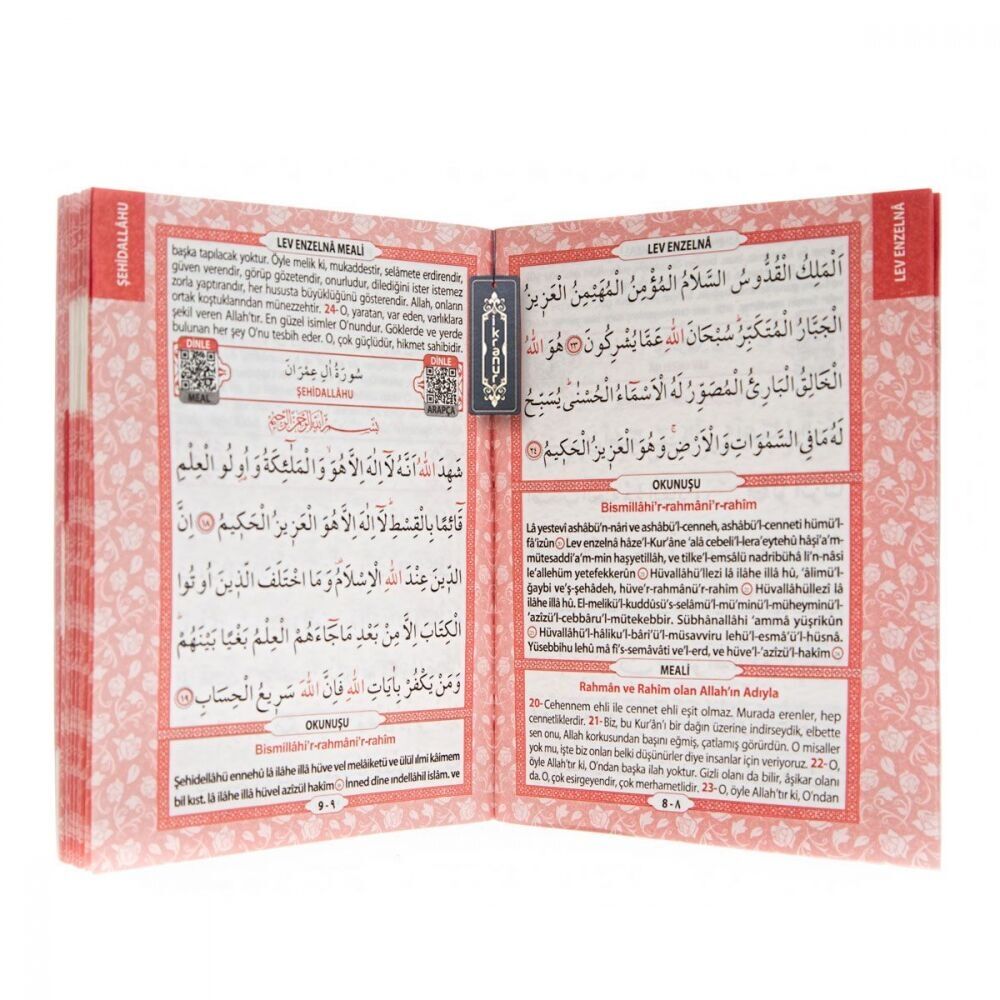 LEV ENZELNÂ
LEV ENZELNÂ
اَلْمَلِكُ الْقُدُّوسُ السَّلَامُ الْمُؤْمِنُ الْمُهَيْمِنُ الْعَزِيزُ
الْجَبَّارُ الْمُتَكَبِّرُ سُبْحَانَ اللّٰهِ عَمَّا يُشْرِكُونَ ﴿٢٣﴾ هُوَ اللّٰهُ
الْخَالِقُ الْبَارِئُ الْمُصَوِّرُ لَهُ الْاَسْمَٓاءُ الْحُسْنٰى يُسَبِّحُ
لَهُ مَا فِي السَّمٰوَاتِ وَالْاَرْضِ وَهُوَ الْعَزِيزُ الْحَكِيمُ ﴿٢٤﴾
OKUNUŞU
Bismillâhi’r-rahmâni’r-rahîm
Lâ yestevî ashâbü’n-nâri ve ashâbü’l-cenneh, ashâbü’l-cenneti hümü’l-
fâ’izûn Lev enzelnâ hâze’l-Kur’âne ‘alâ cebeli’l-lera’eytehû hâşi’a’m-
mütesaddi’a’m-min haşyetillâh, ve tilke’l-emsâlü nadribühâ li’n-nâsi
le’allehüm yetefekkerûn Hüvallâhü’llezî lâ ilâhe illâ hû, ‘âlimü’l-
ğaybi ve’ş-şehâdeh, hüve’r-rahmânü’r-rahîm Hüvallâhüllezî lâ
ilâhe illâ hû. El-melikü’l-kuddûsü’s-selâmü’l-mü’minü’l-müheyminü’l-
‘azîzü’l-cebbaru’l-mütekebbir. Sübhânallâhi ‘ammâ yüşrikûn
Hüvallâhü’l-hâliku’l-bâri’ü’l-müsavviru lehü’l-esmâ’ü’l-hüsnâ.
Yüsebbihu lehû mâ fi’s-semâvâti ve’l-erd, ve hüve’l-’azîzü’l-hakîm
MEALİ
Rahmân ve Rahîm olan Allah’ın Adıyla
20- Cehennem ehli ile cennet ehli eşit olmaz. Murada erenler, hep
cennetliklerdir. 21- Biz, bu Kur’ân’ı bir dağın üzerine indirseydik, elbette
sen onu, Allah korkusundan başını eğmiş, çatlamış görürdün. O misaller
yok mu, işte biz onları belki düşünürler diye insanlar için veriyoruz. 22- O,
öyle Allah’tır ki, O’ndan başka ilah yoktur. Gizli olanı da bilir, âşikar olanı
da. O, çok esirgeyendir, çok merhametlidir. 23- O, öyle Allah’tır ki, O’ndan
8 - ٨
ŞEHİDALLÂHU
LEV ENZELNÂ MEALİ
başka tapılacak yoktur. Öyle melik ki, mukaddestir, selâmete erdirendir,
güven verendir, görüp gözetendir, onurludur, dilediğini ister istemez
zorla yaptırandır, her hususta büyüklüğünü gösterendir. Allah, onların
ortak koştuklarından münezzehtir. 24- O, yaratan, var eden, varlıklara
şekil veren Allah’tır. En güzel isimler O’nundur. Göklerde ve yerde
bulunan her şey O’nu tesbih eder. O, çok güçlüdür, hikmet sahibidir.
DİNLE
MEAL
سُورَةُ اٰلِ عِمْرَانَ
ŞEHİDALLÂHU
DİNLE
ARAPÇA
بِسْمِ اللّٰهِ الرَّحْمٰنِ الرَّحِيمِ
شَهِدَ اللّٰهُ اَنَّهُ لَٓا اِلٰهَ اِلَّا هُوَ وَالْمَلٰٓئِكَةُ وَاُولُو الْعِلْمِ
قَٓائِمًا بِالْقِسْطِ لَٓا اِلٰهَ اِلَّا هُوَ الْعَزِيزُ الْحَكِيمُ ﴿١٨﴾ اِنَّ
الدِّينَ عِنْدَ اللّٰهِ الْاِسْلَامُ وَمَا اخْتَلَفَ الَّذِينَ اُوتُوا
الْكِتَابَ اِلَّا مِنْ بَعْدِ مَا جَٓاءَهُمُ الْعِلْمُ بَغْيًا بَيْنَهُمْ
وَمَنْ يَكْفُرْ بِاٰيَاتِ اللّٰهِ فَاِنَّ اللّٰهَ سَرِيعُ الْحِسَابِ ﴿١٩﴾
OKUNUŞU
Bismillâhi’r-rahmâni’r-rahîm
Şehidellâhü ennehû lâ ilâhe illâ hüve vel melâiketü ve ülül ılmi kâimem
bil kıst. lâ ilâhe illâ hüvel azîzül hakîm İnned dîne ındellâhil islâm. ve
9 - ٩
ikranur